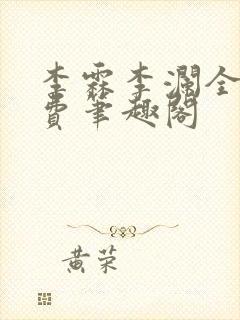 李霖李瀾全
費筆趣閣
黃荣